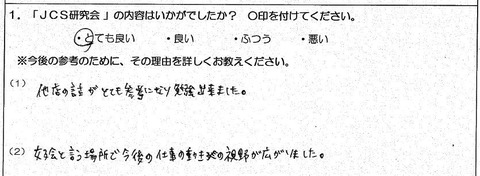 1. 「JCS研究会」の内容はいかがでしたか? ○印を付けてください。
・とても良い ・良い ・ふつう ・悪い
※今後の参考のために、その理由を詳しくお教えください。
(1) 他店の話がとても参考になり勉強出来ました。
(2) 女子会と言う場所で今後の仕事の動きの視野が広がりました。